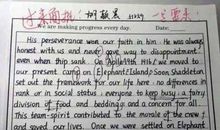 are making progress every day. Date
His perseverance won our faith in him. He was always
honest with us and never gave way to disappointment
even when ship sank. On April 19th 1916 we moved to our
present camp on Elephant Island. Soon Shackleton
set out the framework for our life here: no difference in
rank or in social status, everyone to keep busy, a fairy
division of food and bedding and a concern for all.
This team-spirit contributed to the morale of the crew
and saved our lives. Once we were settled on Elephant